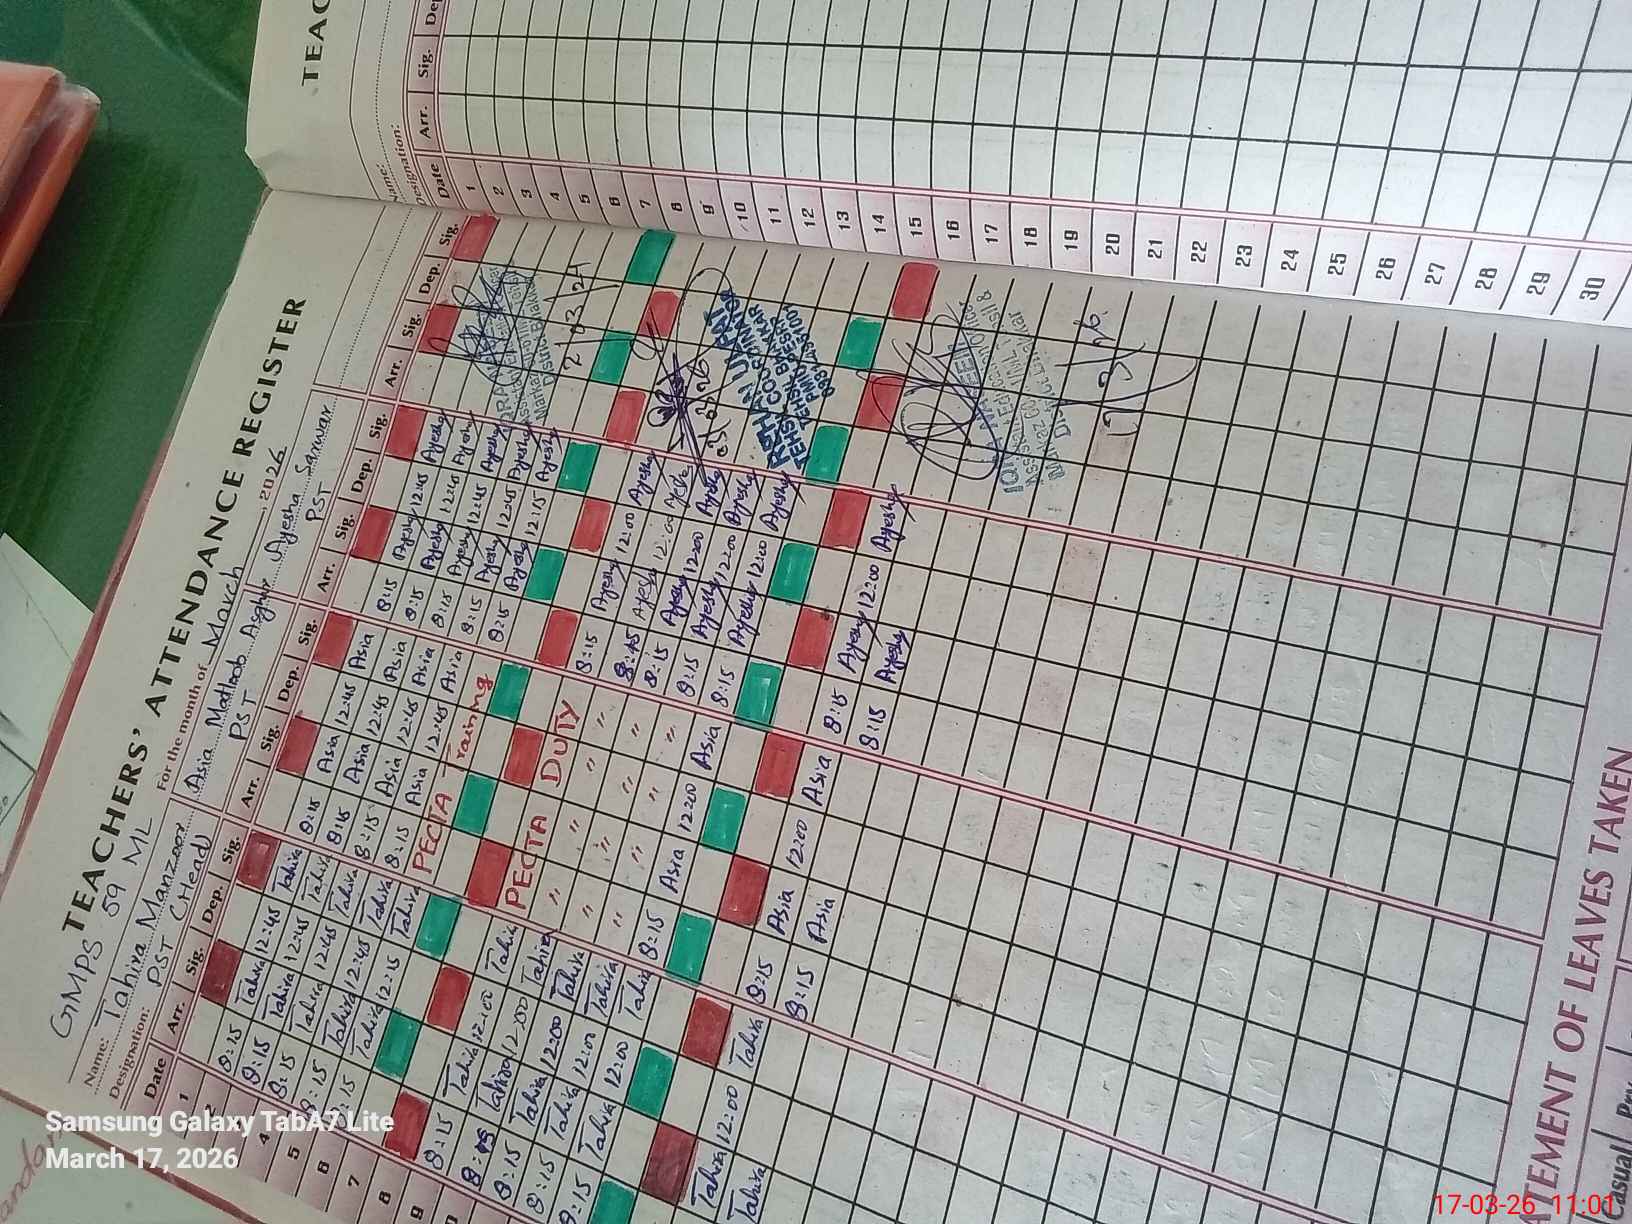 TEACHERS' ATTENDANCE REGISTER
GMPS 59 ML For the month of March , 2026
Name: Tahira Manzoor Asia Matloob Asghar Ayesha Sarwar
Designation: PST (Head) PST PST
Date Arr. Sig. Dep. Sig. Arr. Sig. Dep. Sig. Arr. Sig. Dep. Sig. Arr. Sig. Dep. Sig.
1
2 8:15 Tahira 12:45 Tahira 8:15 Asia 12:45 Asia 8:15 Ayesha 12:45 Ayesha
8:15 Tahira 12:45 Tahira 8:15 Asia 12:45 Asia 8:15 Ayesha 12:45 Ayesha
4 8:15 Tahira 12:45 Tahira 8:15 Asia 12:45 Asia 8:15 Ayesha 12:45 Ayesha
5 8:15 Tahira 12:45 Tahira 8:15 Asia 12:45 Asia 8:15 Ayesha 12:45 Ayesha
6 8:15 Tahira 12:15 Tahira PECTA Training 8:15 Ayesha 12:15 Ayesha
7
8
9 8:15 Tahira 12:00 Tahira PECTA DUTY 8:15 Ayesha 12:00 Ayesha
8:15 Tahira 12:00 Tahira " " " " 8:45 Ayesha 12:00 Ayesha
8:15 Tahira 12:00 Tahira " " " " 8:15 Ayesha 12:00 Ayesha
8:15 Tahira 12:00 Tahira " " " " 8:15 Ayesha 12:00 Ayesha
8:15 Tahira 12:00 Tahira 8:15 Asia 12:00 Asia 8:15 Ayesha 12:00 Ayesha
Tahira 12:00 Tahira 8:15 Asia 12:00 Asia 8:15 Ayesha 12:00 Ayesha
Tahira 8:15 Asia 8:15 Ayesha
District Bhakkar
TEHSIL
District Bhakkar
STATEMENT OF LEAVES TAKEN
Casual
TEAC
Name:
Designation:
Date Arr. Sig. De
1
2
3
4
5
6
7
8
9
10
11
12
13
14
15
16
17
18
19
20
21
22
23
24
25
26
27
28
29
30
Samsung Galaxy TabA7 Lite
March 17, 2026
17-03-26 11:01